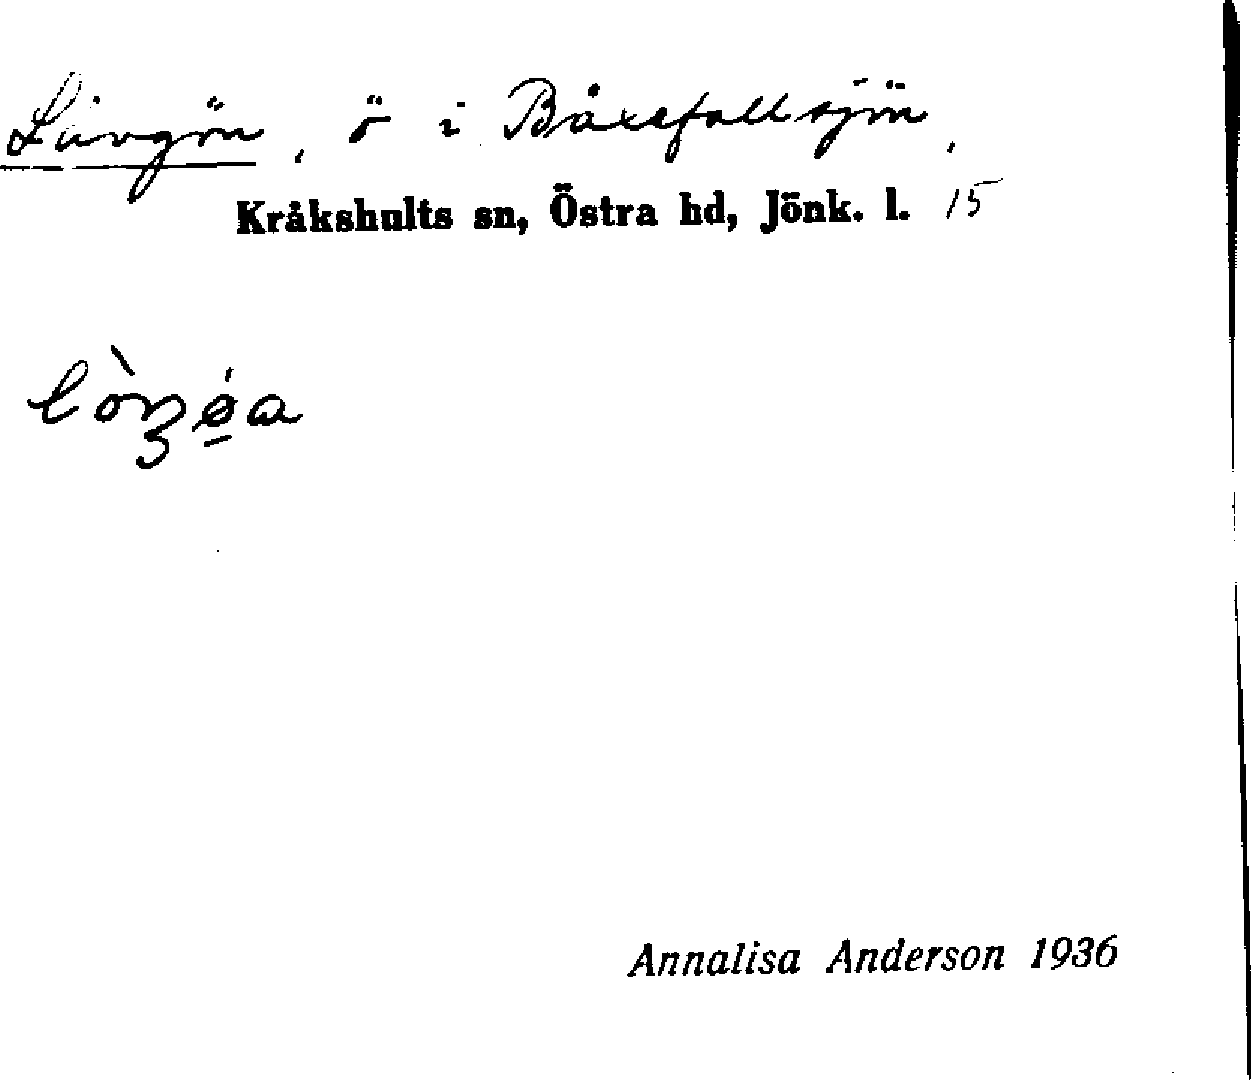 Långön, ö i Båxefallsjön,
Kråkshults sn, Östra hd, Jönk. l. 15
Annalisa Anderson 1936